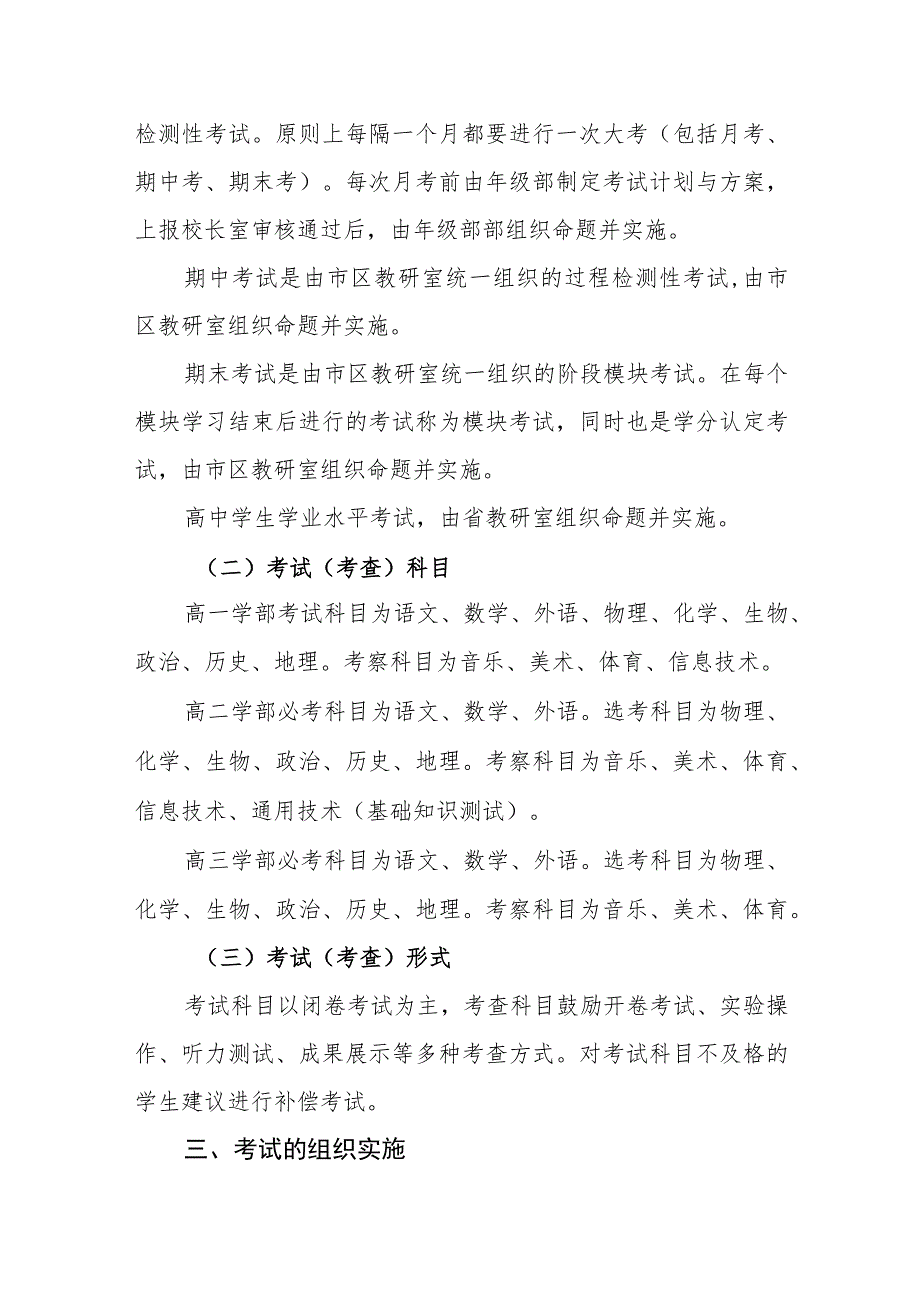 检测性考试。原则上每隔一个月都要进行一次大考（包括月考、
期中考、期末考）。每次月考前由年级部制定考试计划与方案，
上报校长室审核通过后，由年级部部组织命题并实施。
期中考试是由市区教研室统一组织的过程检测性考试,由市
区教研室组织命题并实施。
期末考试是由市区教研室统一组织的阶段模块考试。在每个
模块学习结束后进行的考试称为模块考试，同时也是学分认定考
试，由市区教研室组织命题并实施。
高中学生学业水平考试，由省教研室组织命题并实施。
（二）考试（考查）科目
高一学部考试科目为语文、数学、外语、物理、化学、生物、
政治、历史、地理。考察科目为音乐、美术、体育、信息技术。
高二学部必考科目为语文、数学、外语。选考科目为物理、
化学、生物、政治、历史、地理。考察科目为音乐、美术、体育、
信息技术、通用技术（基础知识测试）。
高三学部必考科目为语文、数学、外语。选考科目为物理、
化学、生物、政治、历史、地理。考察科目为音乐、美术、体育。
（三）考试（考查）形式
考试科目以闭卷考试为主，考查科目鼓励开卷考试、实验操
作、听力测试、成果展示等多种考查方式。对考试科目不及格的
学生建议进行补偿考试。
三、考试的组织实施